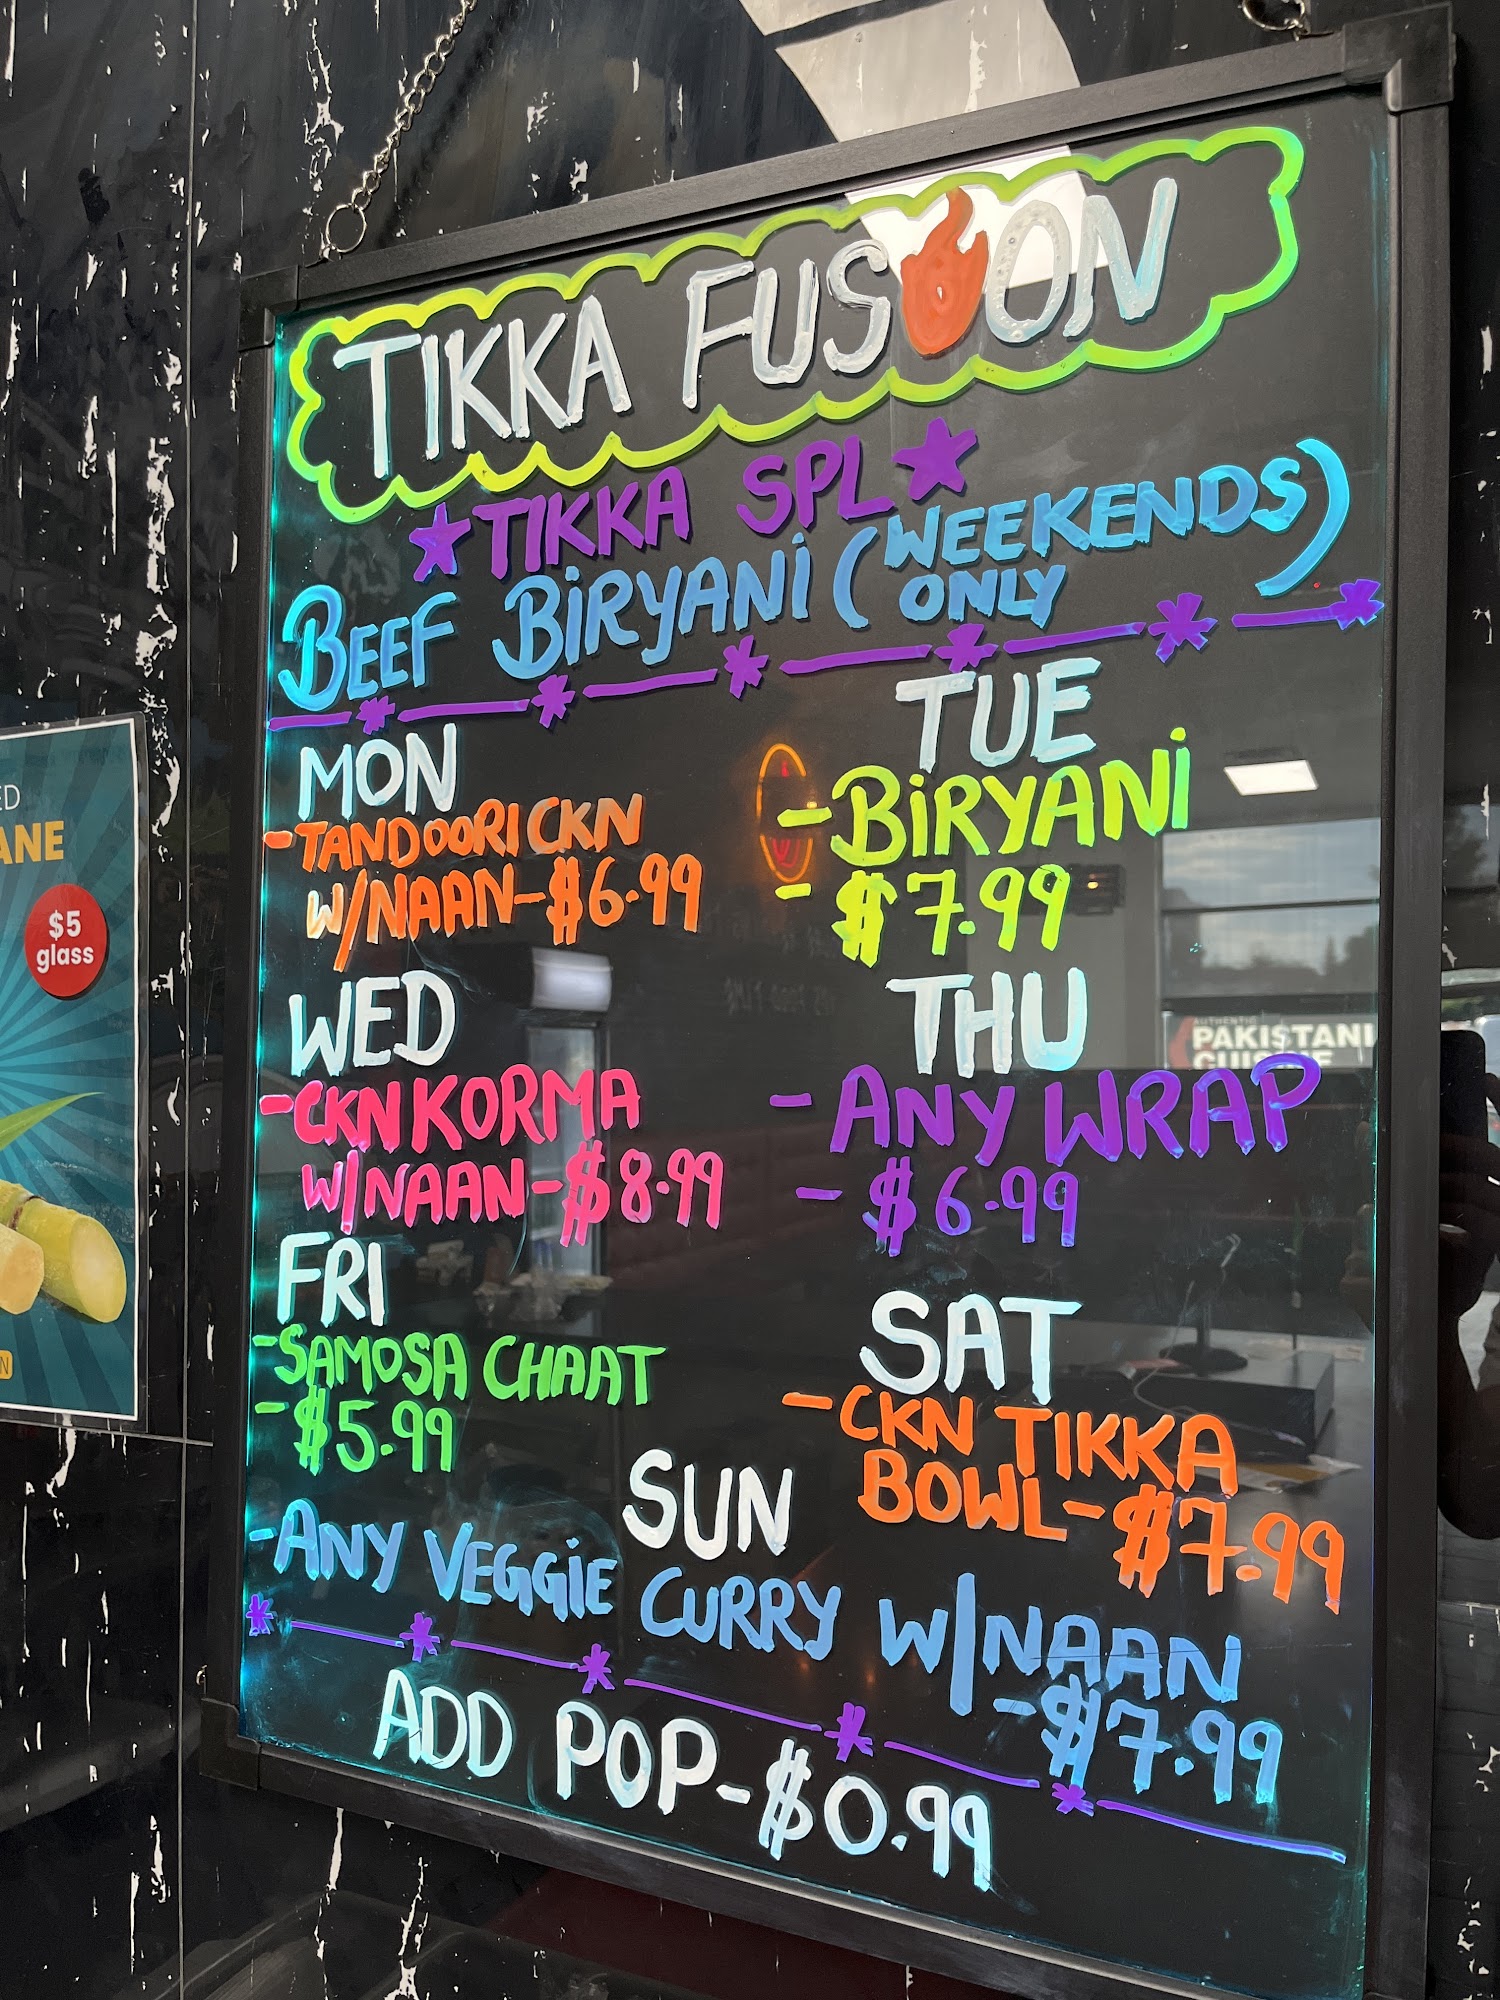 TIKKA FUSION
TIKKA SPL
BEEF BIRYANI (WEEKENDS ONLY)
MON
-TANDOORI CKN
W/NAAN-$6.99
TUE
-BIRYANI
-$7.99
WED
-CKN KORMA
W/NAAN-$8.99
THU
-ANY WRAP
-$6.99
FRI
-SAMOSA CHAAT
-$5.99
SAT
-CKN TIKKA
BOWL-$7.99
SUN
-ANY VEGGIE CURRY W/NAAN
-$7.99
ADD POP-$0.99
$5
glass
AUTHENTIC
PAKISTANI